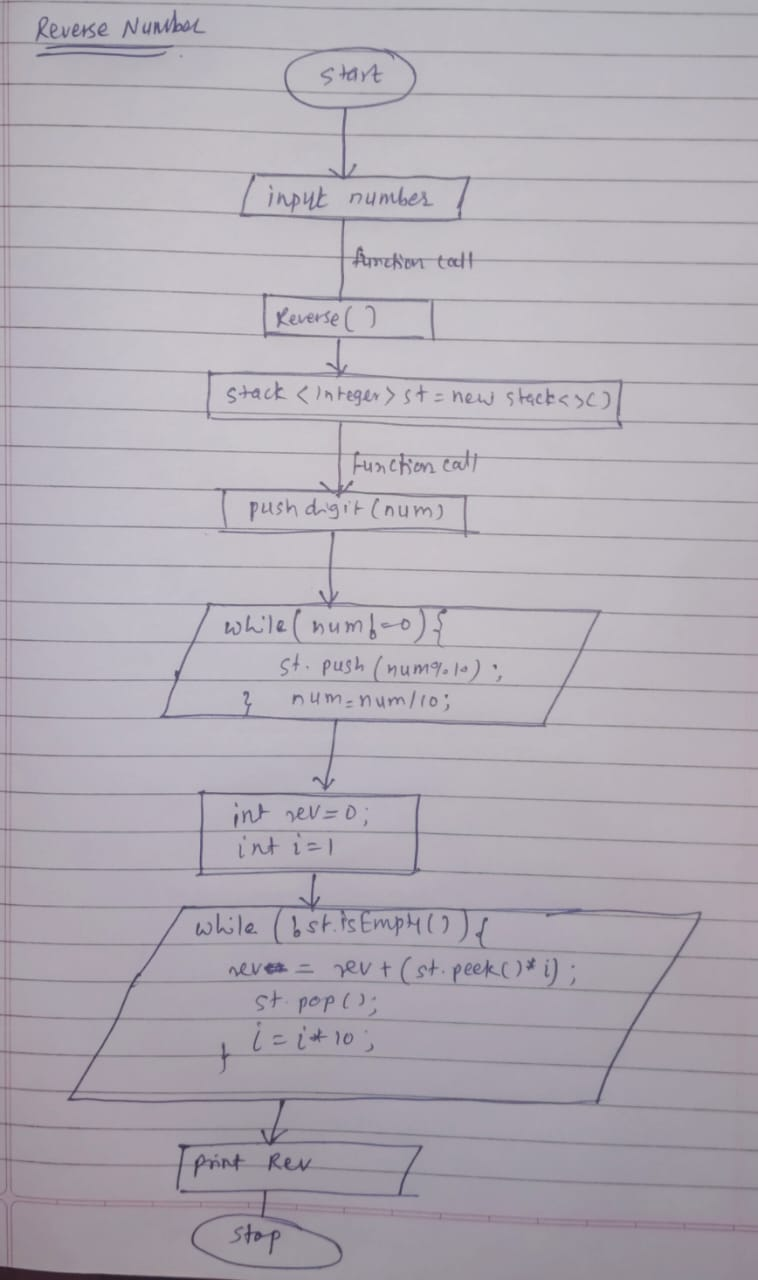 Reverse Number
Start
input number
function call
Reverse()
stack <Integer> st = new stack<>()
function call
push digit (num)
while( num != 0) {
st. push (num%10) ;
} num = num/10;
int rev = 0;
int i = 1
while (!st.isEmpty()) {
rev = rev + (st.peek() * i) ;
st. pop();
i = i * 10 ;
}
print Rev
stop